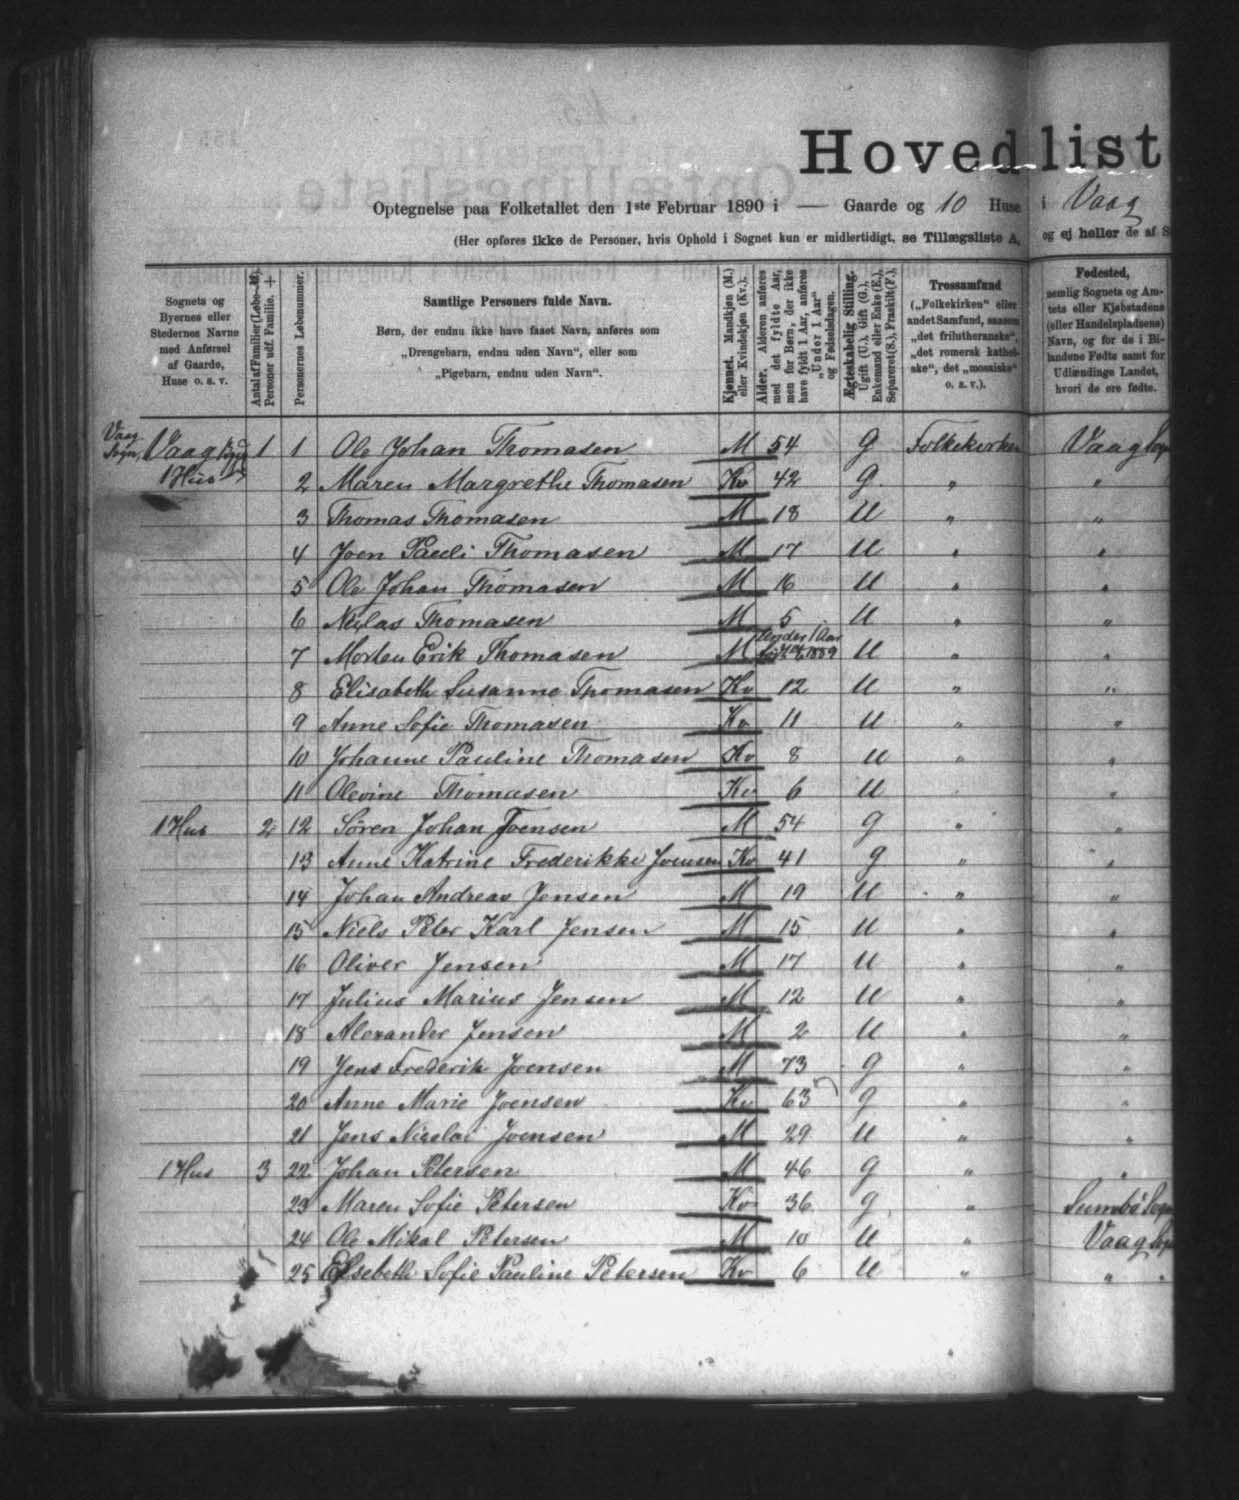 Hovedlist
Optegnelse paa Folketallet den 1ste Februar 1890 i — Gaarde og 10 Huse i Vaag
(Her opføres ikke de Personer, hvis Ophold i Sognet kun er midlertidigt, se Tillægsliste A, og ej heller de af S
Sognets og
Byernes eller
Stedernes Navne
med Anførsel
af Gaarde,
Huse o. s. v.
Antal af Familier (Løbe-№).
Personer udf. Familie. +
Personernes Løbenummer.
Samtlige Personers fulde Navn.
Børn, der endnu ikke have faaet Navn, anføres som
„Drengebarn, endnu uden Navn", eller som
„Pigebarn, endnu uden Navn".
Kjønnet. Mandkjøn (M.)
eller Kvindekjøn (Kv.).
Alder. Alderen anføres
med det fyldte Aar,
men for Børn, der ikke
have fyldt 1 Aar, anføres
„Under 1 Aar"
og Fødselsdagen.
Ægteskabelig Stilling.
Ugift (U.), Gift (G.),
Enkemand eller Enke (E.),
Separeret (S.), Fraskilt (F.).
Trossamfund
(„Folkekirken" eller
andet Samfund, saasom
„det frilutheranske",
„det romersk kathol-
ske", det „mosaiske"
o. s. v.).
Fødested,
nemlig Sognets og Am-
tets eller Kjøbstadens
(eller Handelspladsens)
Navn, og for de i Bi-
landene Fødte samt for
Udlændinge Landet,
hvori de ere fødte.
Vaag
Sogn,
Vaag Bygd 1 1 Ole Johan Thomasen M 54 G Folkekirken Vaag Sogn
1 Hus 2 Maren Margrethe Thomasen Kv 42 G " "
3 Thomas Thomasen M 18 U " "
4 Joen Pauli Thomasen M 17 U " "
5 Ole Johan Thomasen M 16 U " "
6 Niclas Thomasen M 5 U " "
7 Morten Erik Thomasen M Under 1 Aar 1889 U " "
8 Elisabeth Susanne Thomasen Kv 12 U " "
9 Anne Sofie Thomasen Kv 11 U " "
10 Johanne Pauline Thomasen Kv 8 U " "
11 Olevine Thomasen Kv 6 U "
1 Hus 2 12 Søren Johan Joensen M 54 G " "
13 Anne Katrine Frederikke Joensen Kv 41 G " "
14 Johan Andreas Jensen M 19 U " "
15 Niels Peter Karl Jensen M 15 U " "
16 Oliver Jensen M 17 U " "
17 Julius Marius Jensen M 12 U " "
18 Alexander Jensen M 2 U " "
19 Jens Frederik Joensen M 73 G " "
20 Anne Marie Joensen Kv 63 G " "
21 Jens Nicolai Joensen M 29 U " "
1 Hus 3 22 Johan Petersen M 46 G " "
23 Maren Sofie Petersen Kv 36 G " Sumbø Sogn
24 Ole Mikal Petersen M 10 U " Vaag Sogn
25 Elsebeth Sofie Pauline Petersen Kv 6 U " " "